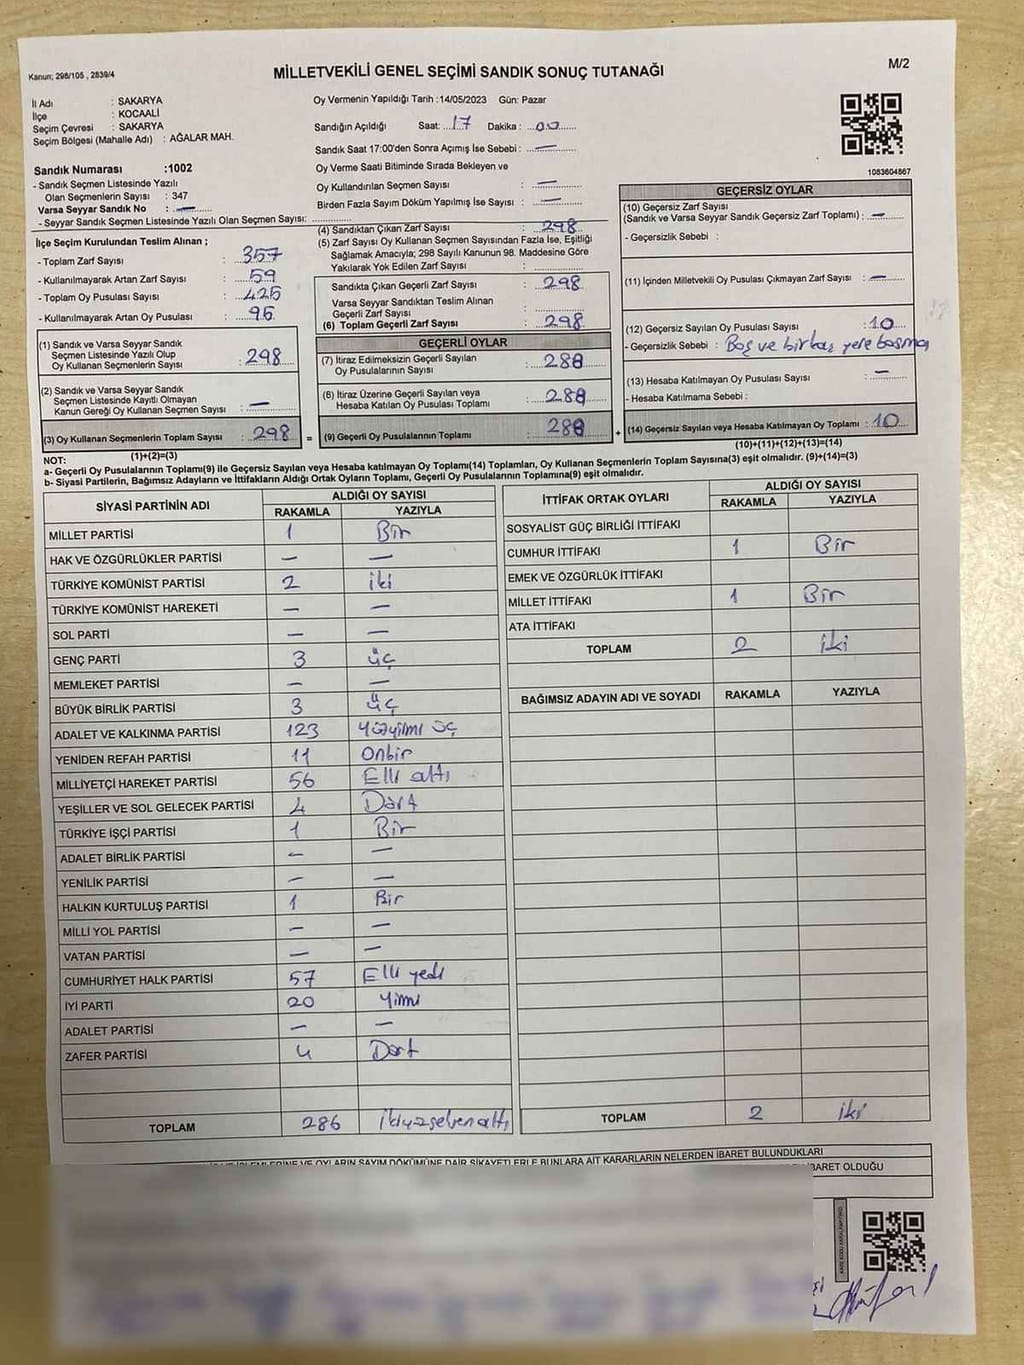 Kanun; 298/105 , 2839/4
MİLLETVEKİLİ GENEL SEÇİMİ SANDIK SONUÇ TUTANAĞI
M/2
İl Adı : SAKARYA
İlçe : KOCAALİ
Seçim Çevresi : SAKARYA
Seçim Bölgesi (Mahalle Adı) : AĞALAR MAH.
Sandık Numarası :1002
- Sandık Seçmen Listesinde Yazılı
Olan Seçmenlerin Sayısı : 347
Varsa Seyyar Sandık No : —
- Seyyar Sandık Seçmen Listesinde Yazılı Olan Seçmen Sayısı:
Oy Vermenin Yapıldığı Tarih :14/05/2023 Gün: Pazar
Sandığın Açıldığı Saat: 17 Dakika : 00
Sandık Saat 17:00'den Sonra Açımış İse Sebebi : —
Oy Verme Saati Bitiminde Sırada Bekleyen ve
Oy Kullandırılan Seçmen Sayısı : —
Birden Fazla Sayım Döküm Yapılmış İse Sayısı : —
1083604867
İlçe Seçim Kurulundan Teslim Alınan ;
- Toplam Zarf Sayısı : 357
- Kullanılmayarak Artan Zarf Sayısı : 59
- Toplam Oy Pusulası Sayısı : 425
- Kullanılmayarak Artan Oy Pusulası : 96
(1) Sandık ve Varsa Seyyar Sandık
Seçmen Listesinde Yazılı Olup
Oy Kullanan Seçmenlerin Sayısı : 298
(2) Sandık ve Varsa Seyyar Sandık
Seçmen Listesinde Kayıtlı Olmayan
Kanun Gereği Oy Kullanan Seçmen Sayısı : —
(3) Oy Kullanan Seçmenlerin Toplam Sayısı : 298 =
(1)+(2)=(3)
(4) Sandıktan Çıkan Zarf Sayısı : 298
(5) Zarf Sayısı Oy Kullanan Seçmen Sayısından Fazla İse, Eşitliği
Sağlamak Amacıyla; 298 Sayılı Kanunun 98. Maddesine Göre
Yakılarak Yok Edilen Zarf Sayısı :
Sandıkta Çıkan Geçerli Zarf Sayısı : 298
Varsa Seyyar Sandıktan Teslim Alınan
Geçerli Zarf Sayısı :
(6) Toplam Geçerli Zarf Sayısı : 298
GEÇERLİ OYLAR
(7) İtiraz Edilmeksizin Geçerli Sayılan
Oy Pusulalarının Sayısı : 288
(8) İtiraz Üzerine Geçerli Sayılan veya
Hesaba Katılan Oy Pusulası Toplamı : 288
(9) Geçerli Oy Pusulalarının Toplamı : 288 +
GEÇERSİZ OYLAR
(10) Geçersiz Zarf Sayısı
(Sandık ve Varsa Seyyar Sandık Geçersiz Zarf Toplamı) : —
- Geçersizlik Sebebi :
(11) İçinden Milletvekili Oy Pusulası Çıkmayan Zarf Sayısı : —
(12) Geçersiz Sayılan Oy Pusulası Sayısı :10
- Geçersizlik Sebebi : Boş ve birkaç yere basma
(13) Hesaba Katılmayan Oy Pusulası Sayısı : —
- Hesaba Katılmama Sebebi :
(14) Geçersiz Sayılan veya Hesaba Katılmayan Oy Toplamı : 10
(10)+(11)+(12)+(13)=(14)
NOT:
a- Geçerli Oy Pusulalarının Toplamı(9) ile Geçersiz Sayılan veya Hesaba katılmayan Oy Toplamı(14) Toplamları, Oy Kullanan Seçmenlerin Toplam Sayısına(3) eşit olmalıdır. (9)+(14)=(3)
b- Siyasi Partilerin, Bağımsız Adayların ve İttifakların Aldığı Ortak Oyların Toplamı, Geçerli Oy Pusulalarının Toplamına(9) eşit olmalıdır.
SİYASİ PARTİNİN ADI
ALDIĞI OY SAYISI
RAKAMLA YAZIYLA
MİLLET PARTİSİ 1 Bir
HAK VE ÖZGÜRLÜKLER PARTİSİ — —
TÜRKİYE KOMÜNİST PARTİSİ 2 iki
TÜRKİYE KOMÜNİST HAREKETİ — —
SOL PARTİ — —
GENÇ PARTİ 3 üç
MEMLEKET PARTİSİ — —
BÜYÜK BİRLİK PARTİSİ 3 üç
ADALET VE KALKINMA PARTİSİ 123 Yüzyirmi üç
YENİDEN REFAH PARTİSİ 11 Onbir
MİLLİYETÇİ HAREKET PARTİSİ 56 Elli altı
YEŞİLLER VE SOL GELECEK PARTİSİ 4 Dört
TÜRKİYE İŞÇİ PARTİSİ 1 Bir
ADALET BİRLİK PARTİSİ — —
YENİLİK PARTİSİ — —
HALKIN KURTULUŞ PARTİSİ 1 Bir
MİLLİ YOL PARTİSİ — —
VATAN PARTİSİ — —
CUMHURİYET HALK PARTİSİ 57 Elli yedi
İYİ PARTİ 20 Yirmi
ADALET PARTİSİ — —
ZAFER PARTİSİ 4 Dört
TOPLAM 286 ikiyüzseksenaltı
İTTİFAK ORTAK OYLARI
ALDIĞI OY SAYISI
RAKAMLA YAZIYLA
SOSYALİST GÜÇ BİRLİĞİ İTTİFAKI
CUMHUR İTTİFAKI 1 Bir
EMEK VE ÖZGÜRLÜK İTTİFAKI
MİLLET İTTİFAKI 1 Bir
ATA İTTİFAKI
TOPLAM 2 iki
BAĞIMSIZ ADAYIN ADI VE SOYADI RAKAMLA YAZIYLA
TOPLAM 2 iki
VE OYLARIN SAYIM DÖKÜMÜNE DAİR ŞİKAYETLERLE BUNLARA AİT KARARLARIN NELERDEN İBARET BULUNDUKLARI
İBARET OLDUĞU